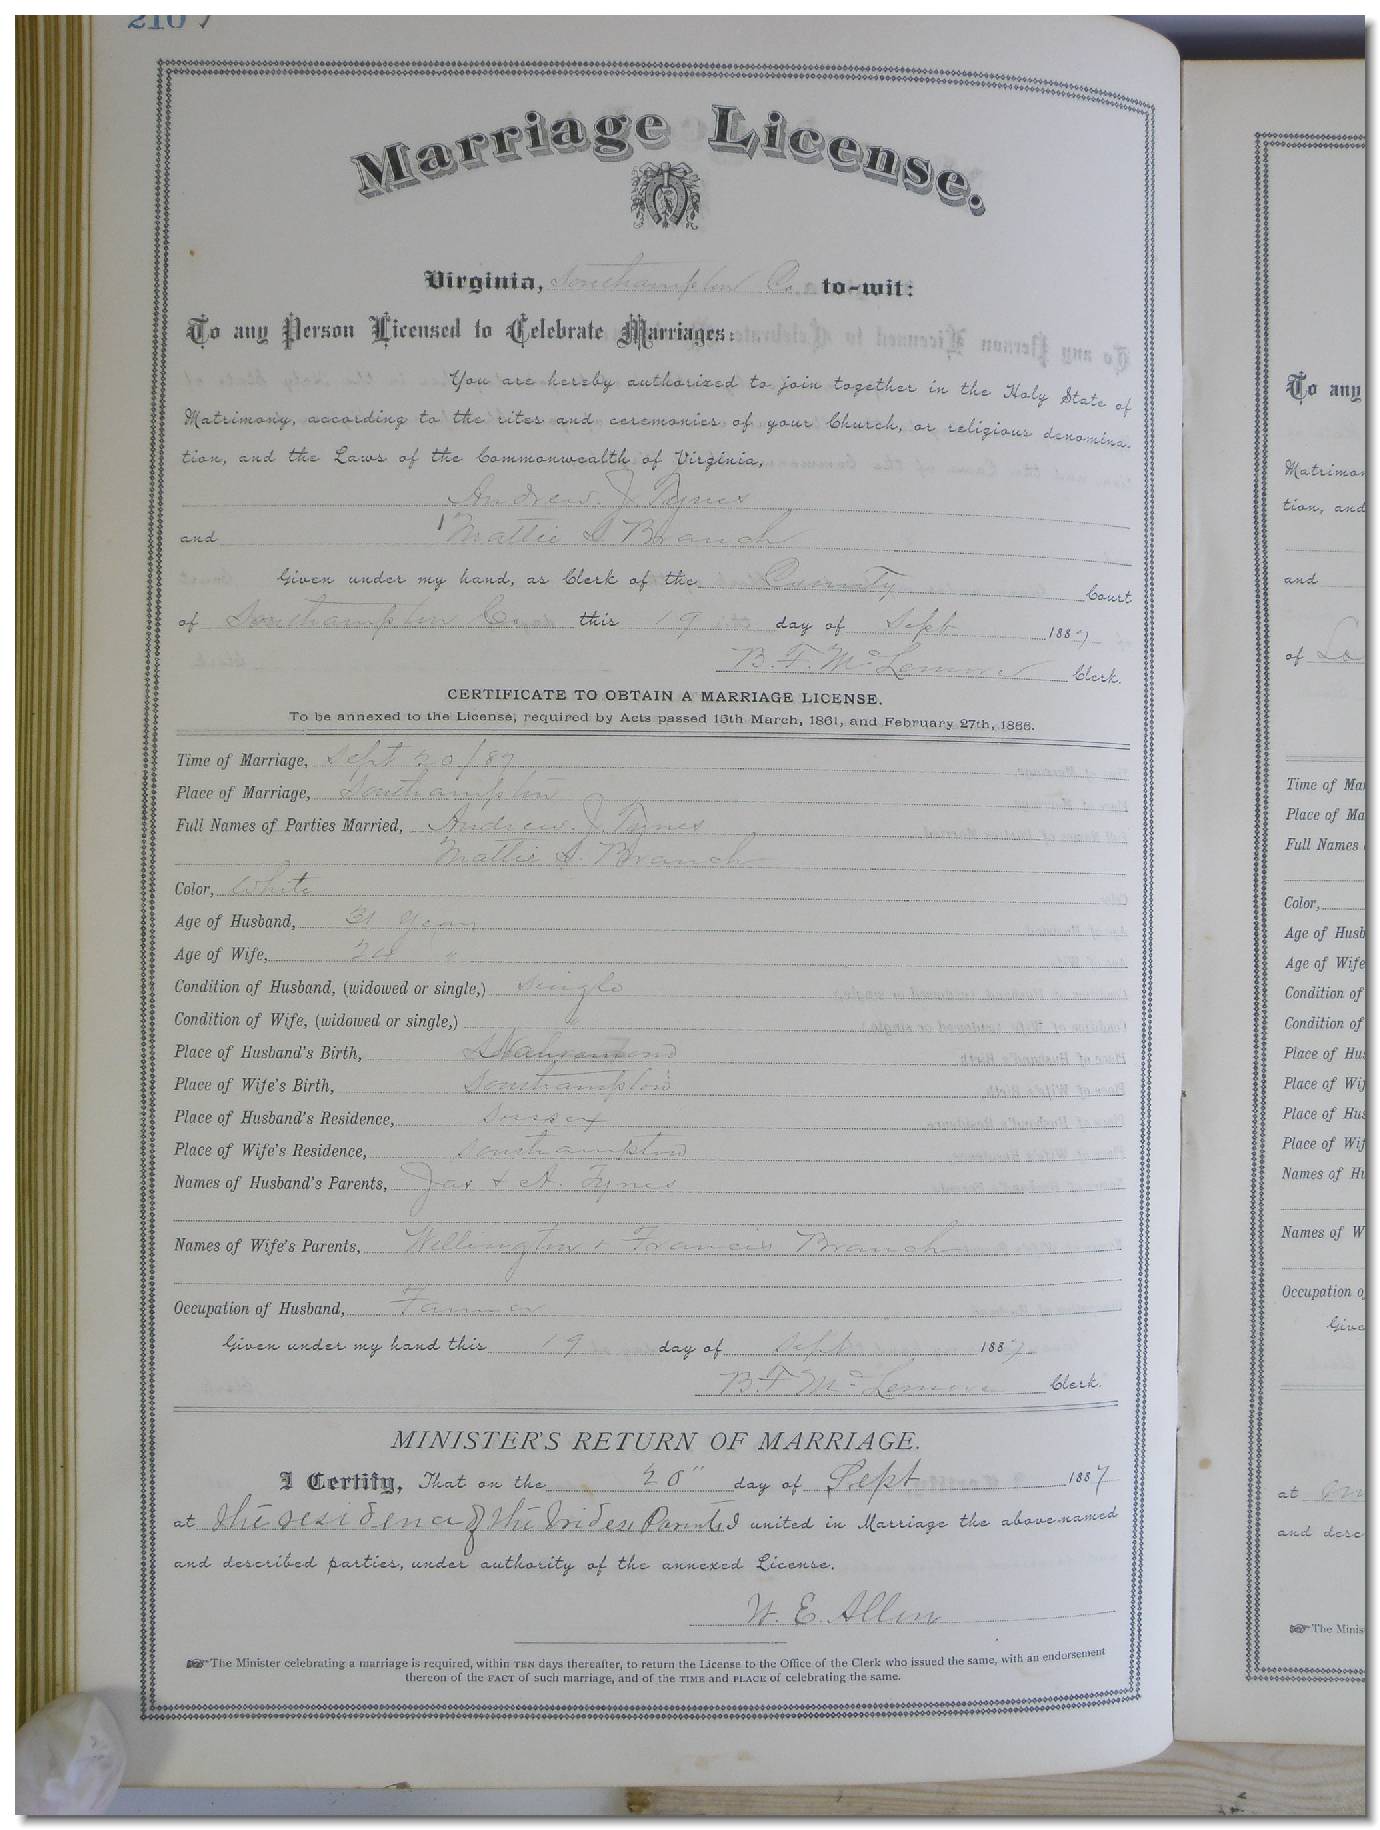 210 7
Marriage License.
Virginia, Southampton Co. to-wit:
To any Person Licensed to Celebrate Marriages:
You are hereby authorized to join together in the Holy State of
Matrimony, according to the rites and ceremonies of your Church, or religious denomina-
tion, and the Laws of the Commonwealth of Virginia,
Andrew. J. Tynes
and Mattie S. Branch
Given under my hand, as Clerk of the County Court
of Southampton County this 19 day of Sept 1887
B. F. McLemore Clerk.
CERTIFICATE TO OBTAIN A MARRIAGE LICENSE.
To be annexed to the License, required by Acts passed 15th March, 1861, and February 27th, 1866.
Time of Marriage, Sept 20/87
Place of Marriage, Southampton
Full Names of Parties Married, Andrew. J. Tynes
Mattie S. Branch
Color, White
Age of Husband, 31 years
Age of Wife, "
Condition of Husband, (widowed or single,) Single
Condition of Wife, (widowed or single,) "
Place of Husband's Birth, Nansemond
Place of Wife's Birth, Southampton
Place of Husband's Residence, Sussex
Place of Wife's Residence, Southampton
Names of Husband's Parents, Jas & A. Tynes
Names of Wife's Parents, Wellington & Francis Branch
Occupation of Husband, Farmer
Given under my hand this 19 day of Sept 1887
B. F. McLemore Clerk.
MINISTER'S RETURN OF MARRIAGE.
I Certify, That on the 20" day of Sept 1887
at the residence of the brides Parents I united in Marriage the above-named
and described parties, under authority of the annexed License.
W. E. Allen
The Minister celebrating a marriage is required, within TEN days thereafter, to return the License to the Office of the Clerk who issued the same, with an endorsement
thereon of the FACT of such marriage, and of the TIME and PLACE of celebrating the same.
To any
Matrimo
tion, and
and
of
Time of Ma
Place of Ma
Full Names
Color,
Age of Husb
Age of Wife
Condition of
Condition of
Place of Hu
Place of Wif
Place of Hus
Place of Wif
Names of Hu
Names of W
Occupation o
Give
at
and desc
The Minis